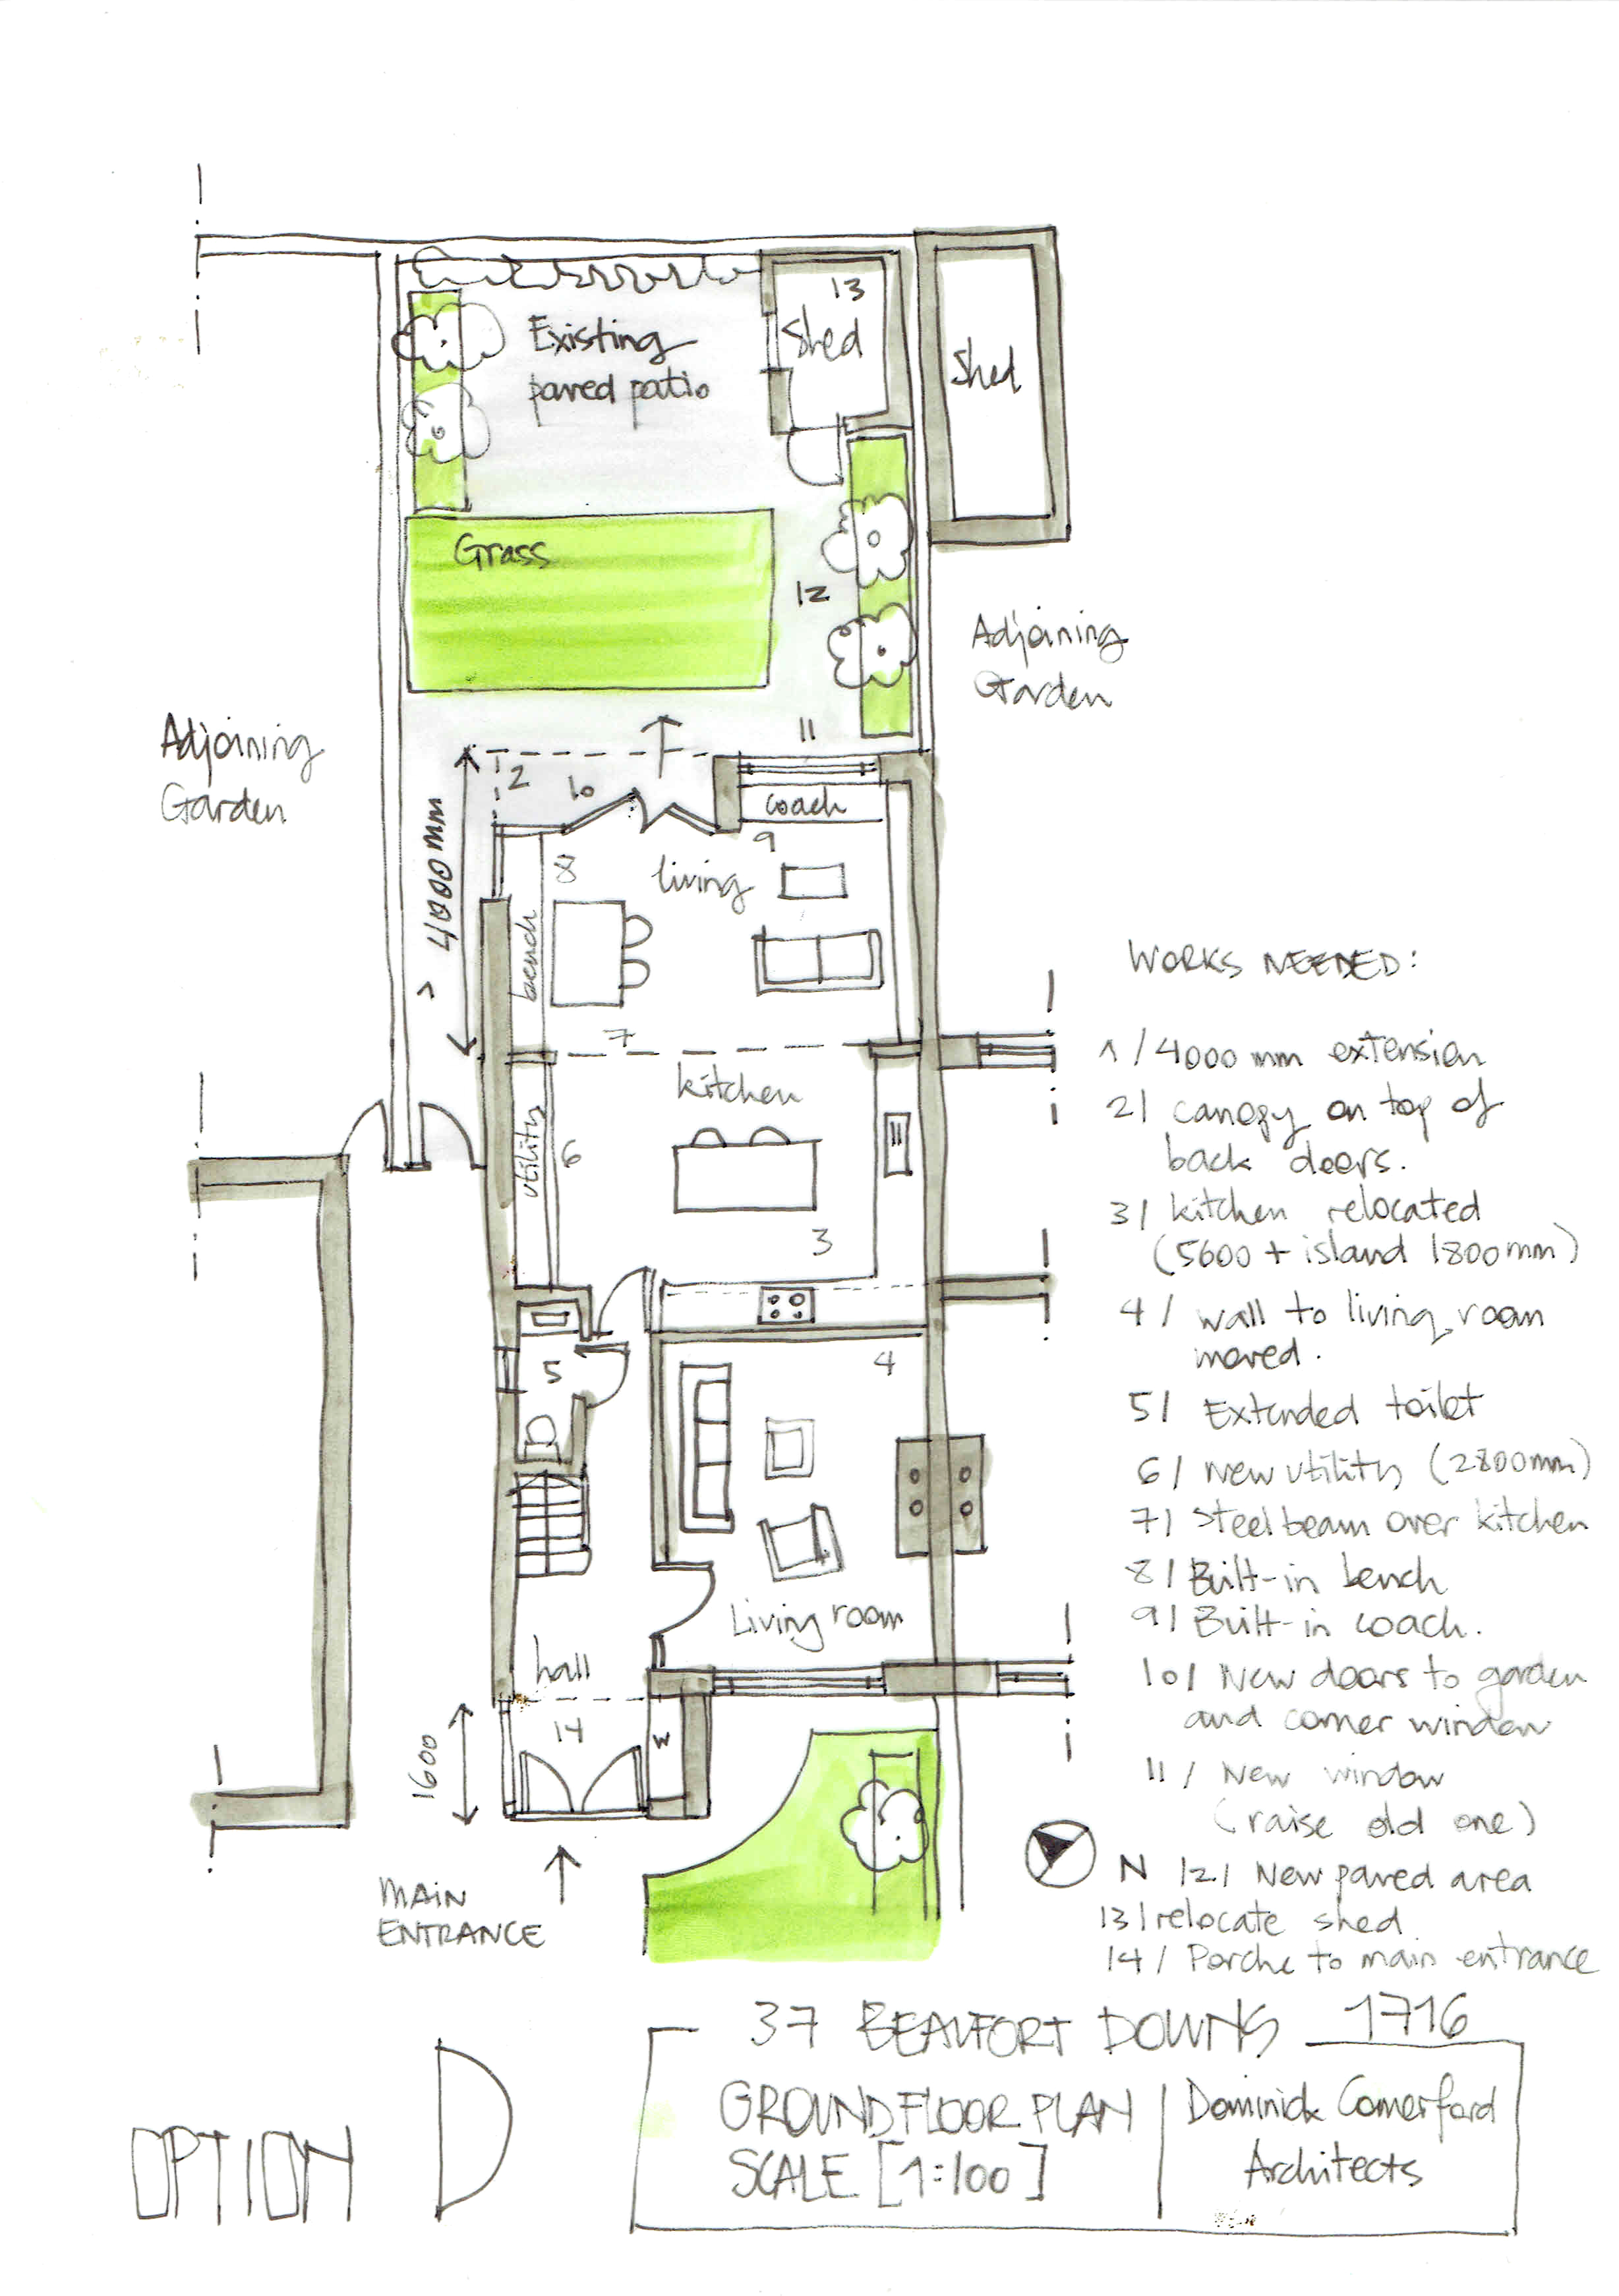 13
Shed
Shed
Existing
paved patio
Grass
12
Adjoining
Garden
Adjoining
Garden
11
2
10
coach
9
4000 mm
8
living
bench
7
>
kitchen
utility
6
3
4
5
Living room
hall
14
W
1600
MAIN
ENTRANCE
WORKS NEEDED:
1 / 4000 mm extension
2 / canopy on top of
back doors.
3 / kitchen relocated
(5600 + island 1800mm)
4 / wall to living room
moved.
5 / Extended toilet
6 / New utility (2800mm)
7 / Steel beam over kitchen
8 / Built-in bench
9 / Built-in coach.
10 / New doors to garden
and corner window
11 / New window
(raise old one)
N
12 / New paved area
13 / relocate shed
14 / Porche to main entrance
37 BEAUFORT DOWNS 1716
GROUND FLOOR PLAN
SCALE [1:100]
Dominick Comerford
Architects
OPTION D